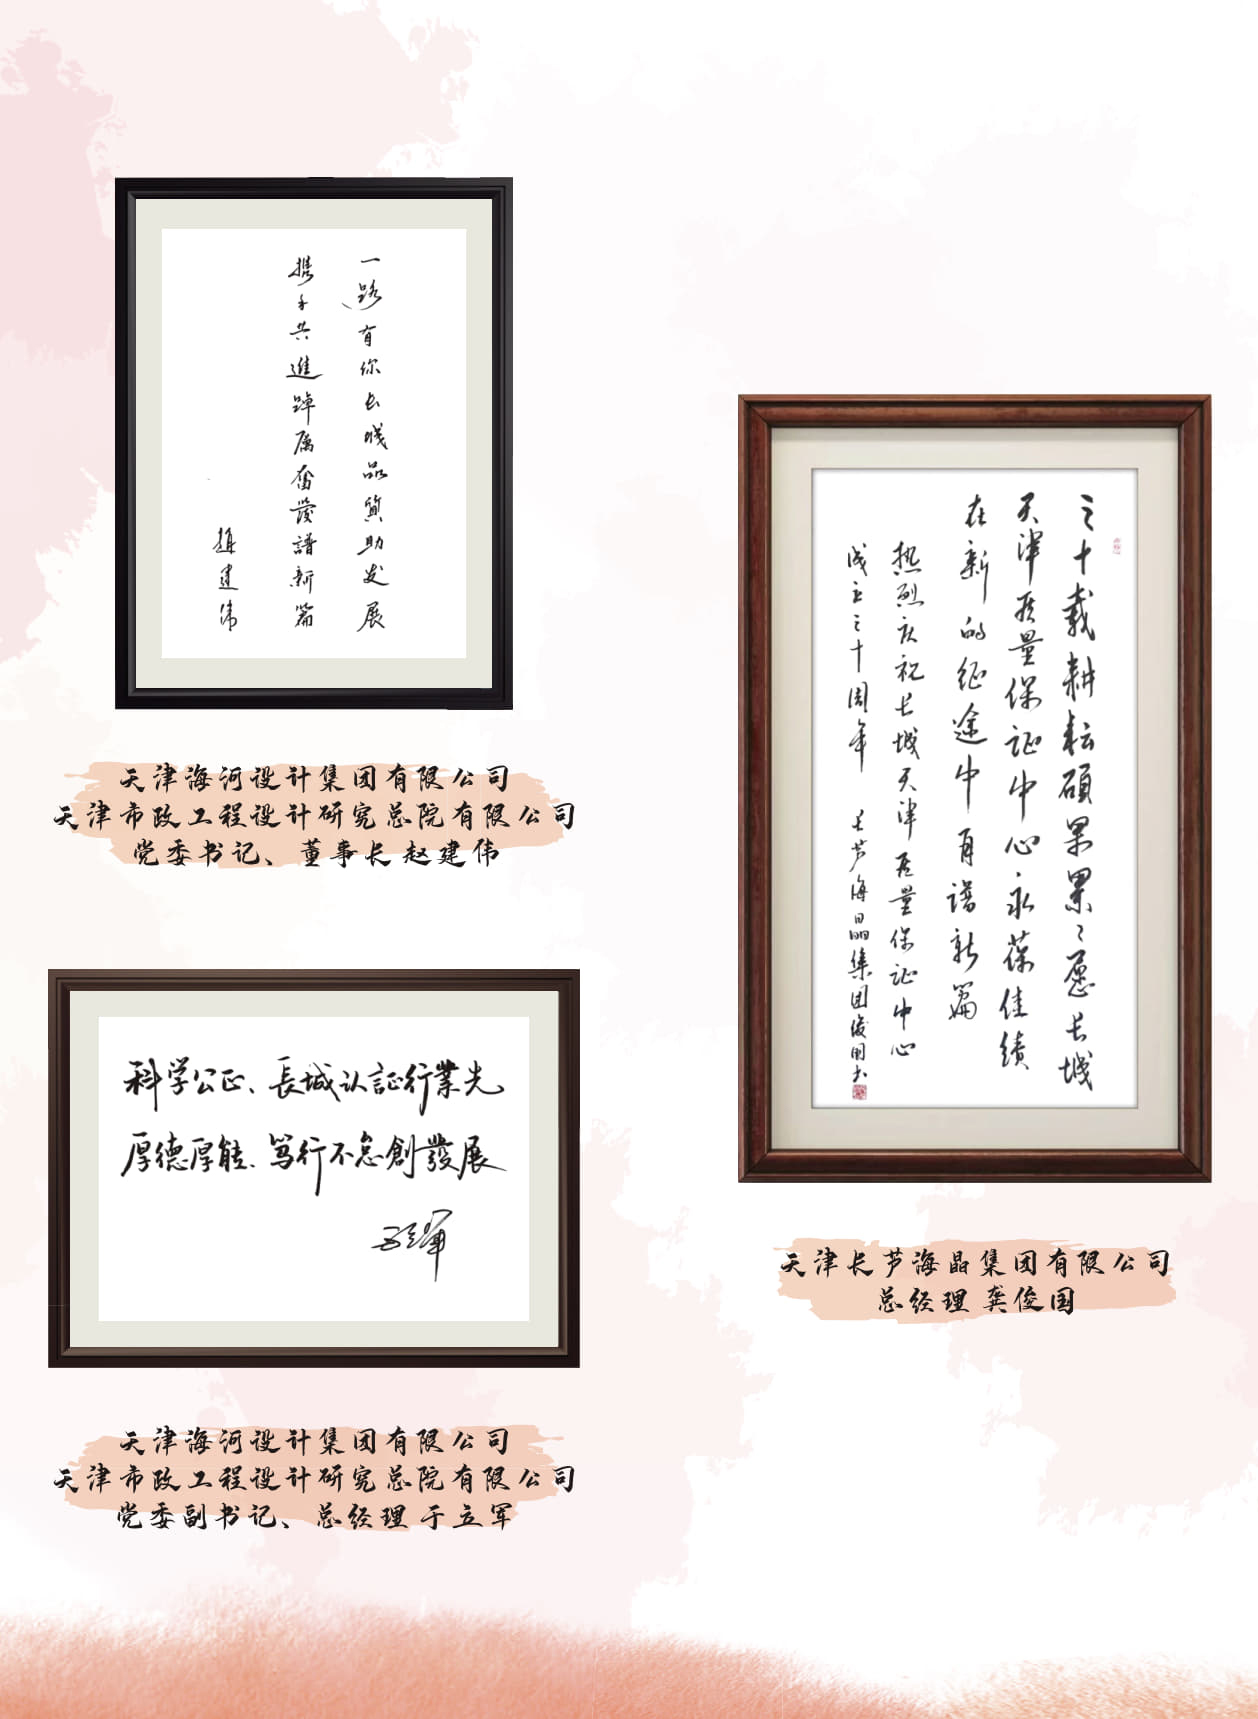 一路有你长城品質助发展
携手共進踔厲奮發譜新篇
趙建偉
天津海河设计集团有限公司
天津市政工程设计研究总院有限公司
党委书记、董事长 赵建伟
科学公正、長城认証行業光
厚德厚能、笃行不怠創發展
于立军
天津海河设计集团有限公司
天津市政工程设计研究总院有限公司
党委副书记、总经理 于立军
三十载耕耘硕果累々愿长城
天津质量保证中心永葆佳绩
在新的征途中再谱新篇
热烈庆祝长城天津质量保证中心
成立三十周年 长芦海晶集团俊国书
天津长芦海晶集团有限公司
总经理 龚俊国